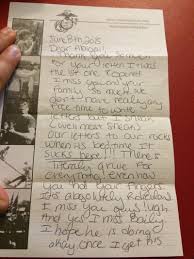 June 8th 2015
Dear Abigail,
Thank you so much
for your letter! I was
the 1st one I opened.
I miss you and your
family so much. we
don't have really any
free time to write
letters but I brian
(well most
Our letters to our racks
when its bedtime. It
SUCKS here!!! There's
literally a rule for
everything! Even how
you hold your fingers.
Its absolutely ridiculous.
I miss you guys
And yes I miss Bailey
I hope he is doing
okay. Once I get his